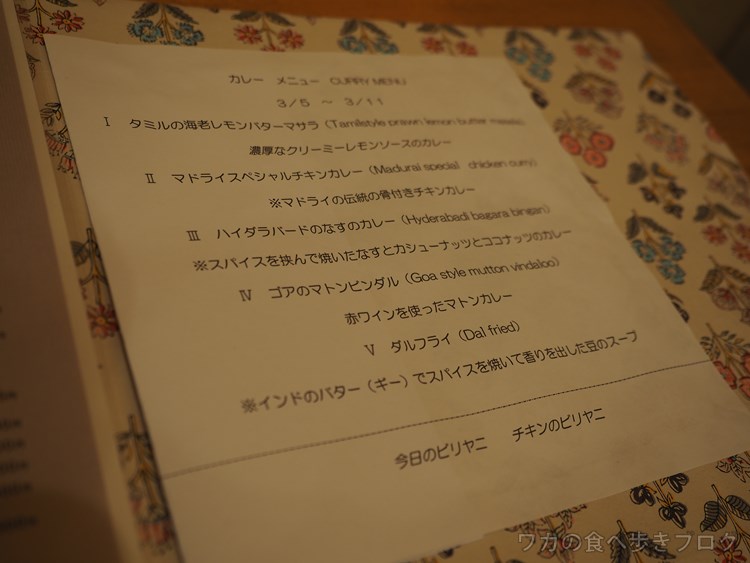 カレー メニュー CURRY MENU
3/5 ～ 3/11
Ⅰ タミルの海老レモンバターマサラ（Tamilstyle prawn lemon butter masala）
濃厚なクリーミーレモンソースのカレー
Ⅱ マドライスペシャルチキンカレー（Madurai special chicken curry）
※マドライの伝統の骨付きチキンカレー
Ⅲ ハイダラバードのなすのカレー（Hyderabadi bagara bingan）
※スパイスを挟んで焼いたなすとカシューナッツとココナッツのカレー
Ⅳ ゴアのマトンビンダル（Goa style mutton vindaloo）
赤ワインを使ったマトンカレー
Ⅴ ダルフライ（Dal fried）
※インドのバター（ギー）でスパイスを焼いて香りを出した豆のスープ
今日のビリヤニ チキンのビリヤニ
ワカの食べ歩きブログ